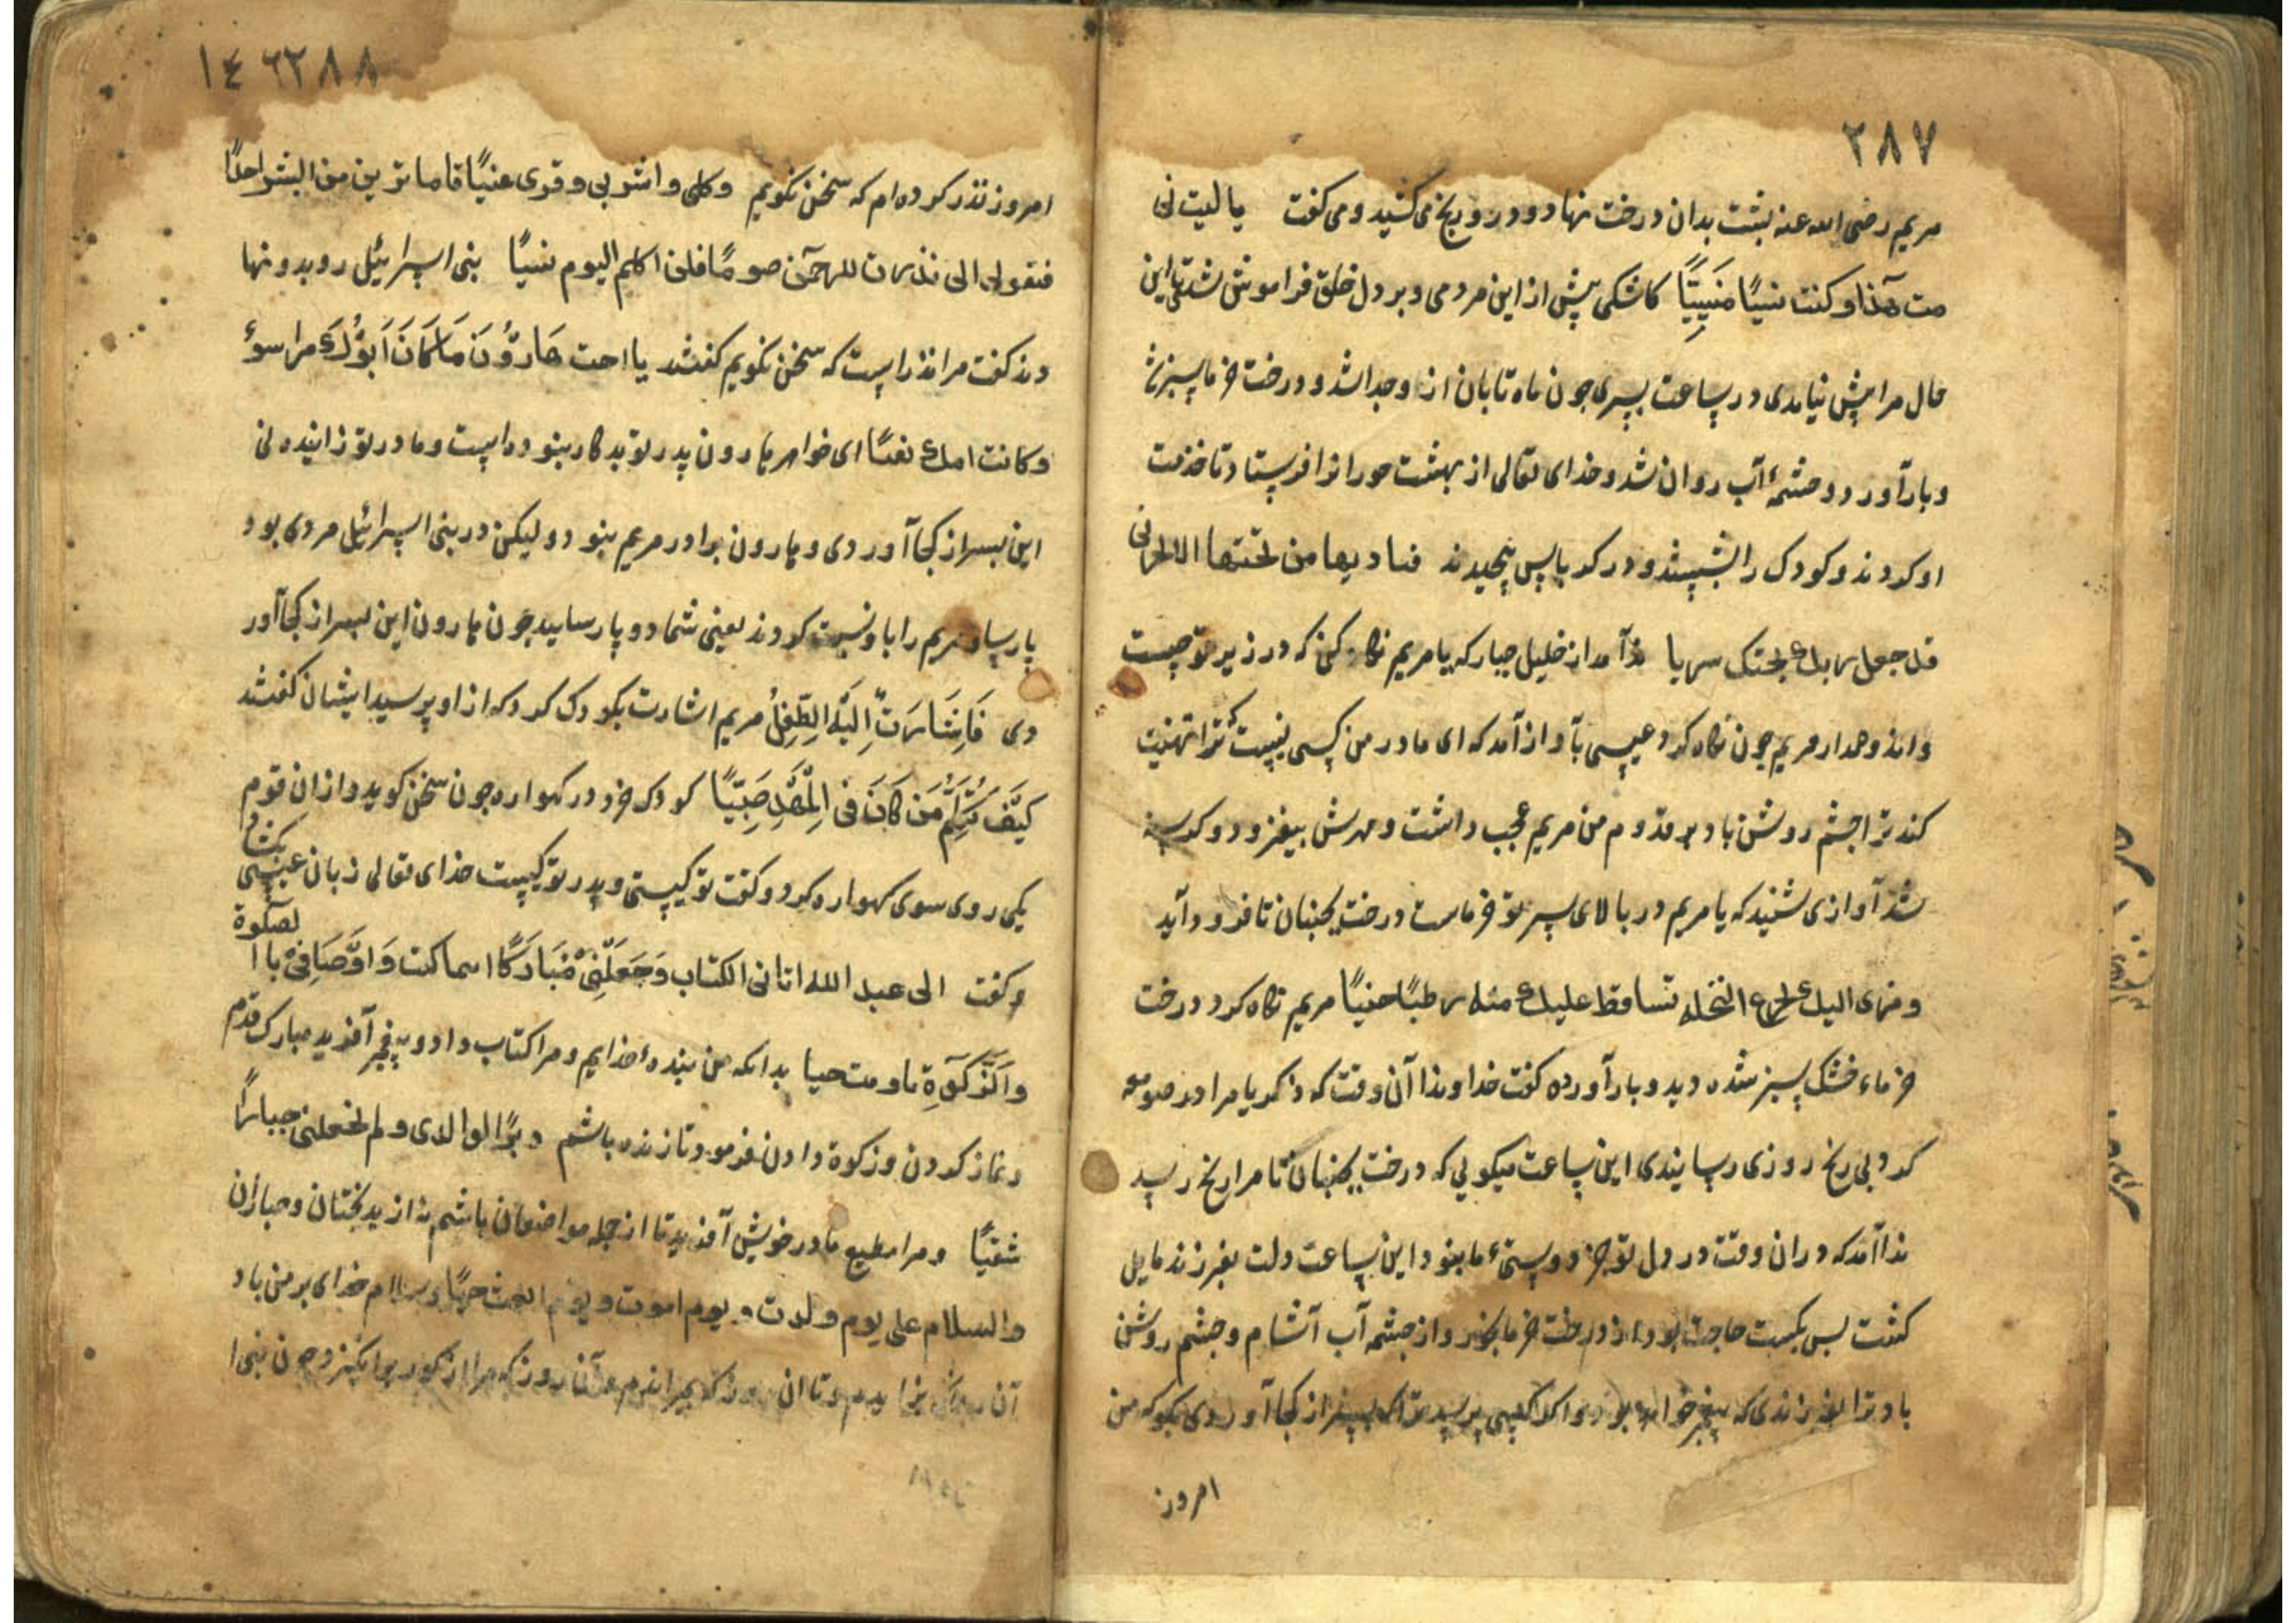 ٢٨٧
مریم رضی الله عنه بشت بدان درخت نهاد و درد و رنج می کشید و می کفت یا لیت نی
مت هذا و کنت نسیًا مَنسِیًّا کاشکی پیش از این مردمی و بر دل خلق فراموش شدی تا این
حال مرا پیش نیامدی در ساعت پسری جون ماه تابان از او جدا شد و درخت خرما سبز شد
و بار آورد و چشمهٔ آب روان شد و خدای تعالی از بهشت حورانرا فرستاد تا خدمت
او کردند و کودک را بشستند و در کرباس پیچیدند فنادیها من تحتها الا تحزنی
قد جعل ربك تحتك سریا ندا آمد از خلیل جبار که یا مریم نگاه کن که در زیر تو چیست
و اندوه مدار مریم جون نگاه کرد عیسی بآواز آمد که ای مادر من کسی نیست که ترا تهنیت
کند ترا چشم روشن باد بقدوم من مریم عجب داشت و مهرش بیفزود و کرسنه
شد آوازی شنید که یا مریم در بالای سر تو خرماست درخت بجنبان تا فرود آید
و هزی الیك بجذع النخلة تساقط علیك منه رطبًا جنیًا مریم نگاه کرد درخت
خرماء خشک سبز شده دید و بار آورده کفت خداوندا آن وقت که ذکریا مرا در صومعه
کرد بی رنج روزی رسایندی این ساعت میکویی که درخت بجنبان تا مرا رنج رسید
ندا آمد که در ان وقت در دل تو جز دوستیء ما نبود این ساعت دلت بفرزند مایل
کشت بس بکسبت حاجت بود از درخت خرما بخور و از چشمه آب آشام و چشم روشن
باد ترا بفرزندی که پیغمبر خواهد بود و اکر کسی پرسد ترا که پسر از کجا آوردی بکو که من
امروز
١٤٦٢٨٨
امروز نذر کرده ام که سخن نکویم وکلی واشربی وقری عنیًا فاما ترین من البشر احدًا
فقولی انی نذرت للرحمٰن صومًا فلن اکلم الیوم نسیًا بنی اسرائیل رو بدو نها
دند کفت مرا نذر است که سخن نکویم کفتند یا اخت هَارُوْنَ مَا کَانَ اَبُوْكَ مرا سوءٔ
وکانت امك بغیًا ای خواهر هارون پدر تو بد کار نبوده است و مادر تو زاینده نی
این بسر از کجا آوردی و هارون برادر مریم نبود و لیکن در بنی اسرائیل مردی بود
پارسا و مریم را با و نسبت کردند یعنی شما دو پارسایید جون هارون این بسر از کجا آور
دی فَاَشَارَتْ اِلَیْهِ الطِّفِلُ مریم اشارت بکودک کرد که از او پرسید ایشان کفتند
کَیْفَ نُکَلِّمُ مَن کَانَ فی الْمَهْدِ صَبِیًّا کودک خرد در کهواره جون سخن کوید و از ان قوم
یکی روی سوی کهواره کرد و کفت تو کیستی و پدر تو کیست خدای تعالی زبان عیسی بکشاد
و کفت انی عبد الله اتانی الکتاب وَجَعَلَنِیْ مُبَارَکًا اینما کنت وَاَوْصَانِیْ باالصلوة
وَالزَّکوٰةِ ما دمت حیا بدانکه من بندهٔ خدایم و مرا کتاب داد و پیغمبر آفرید مبارک قدم
و نماز کردن و زکوة دادن فرمود تا زنده باشم و برًّا بوالدی و لم یجعلنی جبارًا
شقیًا و مرا مطیع مادر خویش آفرید تا از جمله متواضعان باشم نه از بدبختان و جباران
والسلام علی یوم ولدت و یوم اموت و یوم ابعث حیًا و سلام خدای بر من باد
آن روز که بزایدم و تا ان روز که بمیراندم و آن روز که مرا از کور برانکیزد جون بنی ا